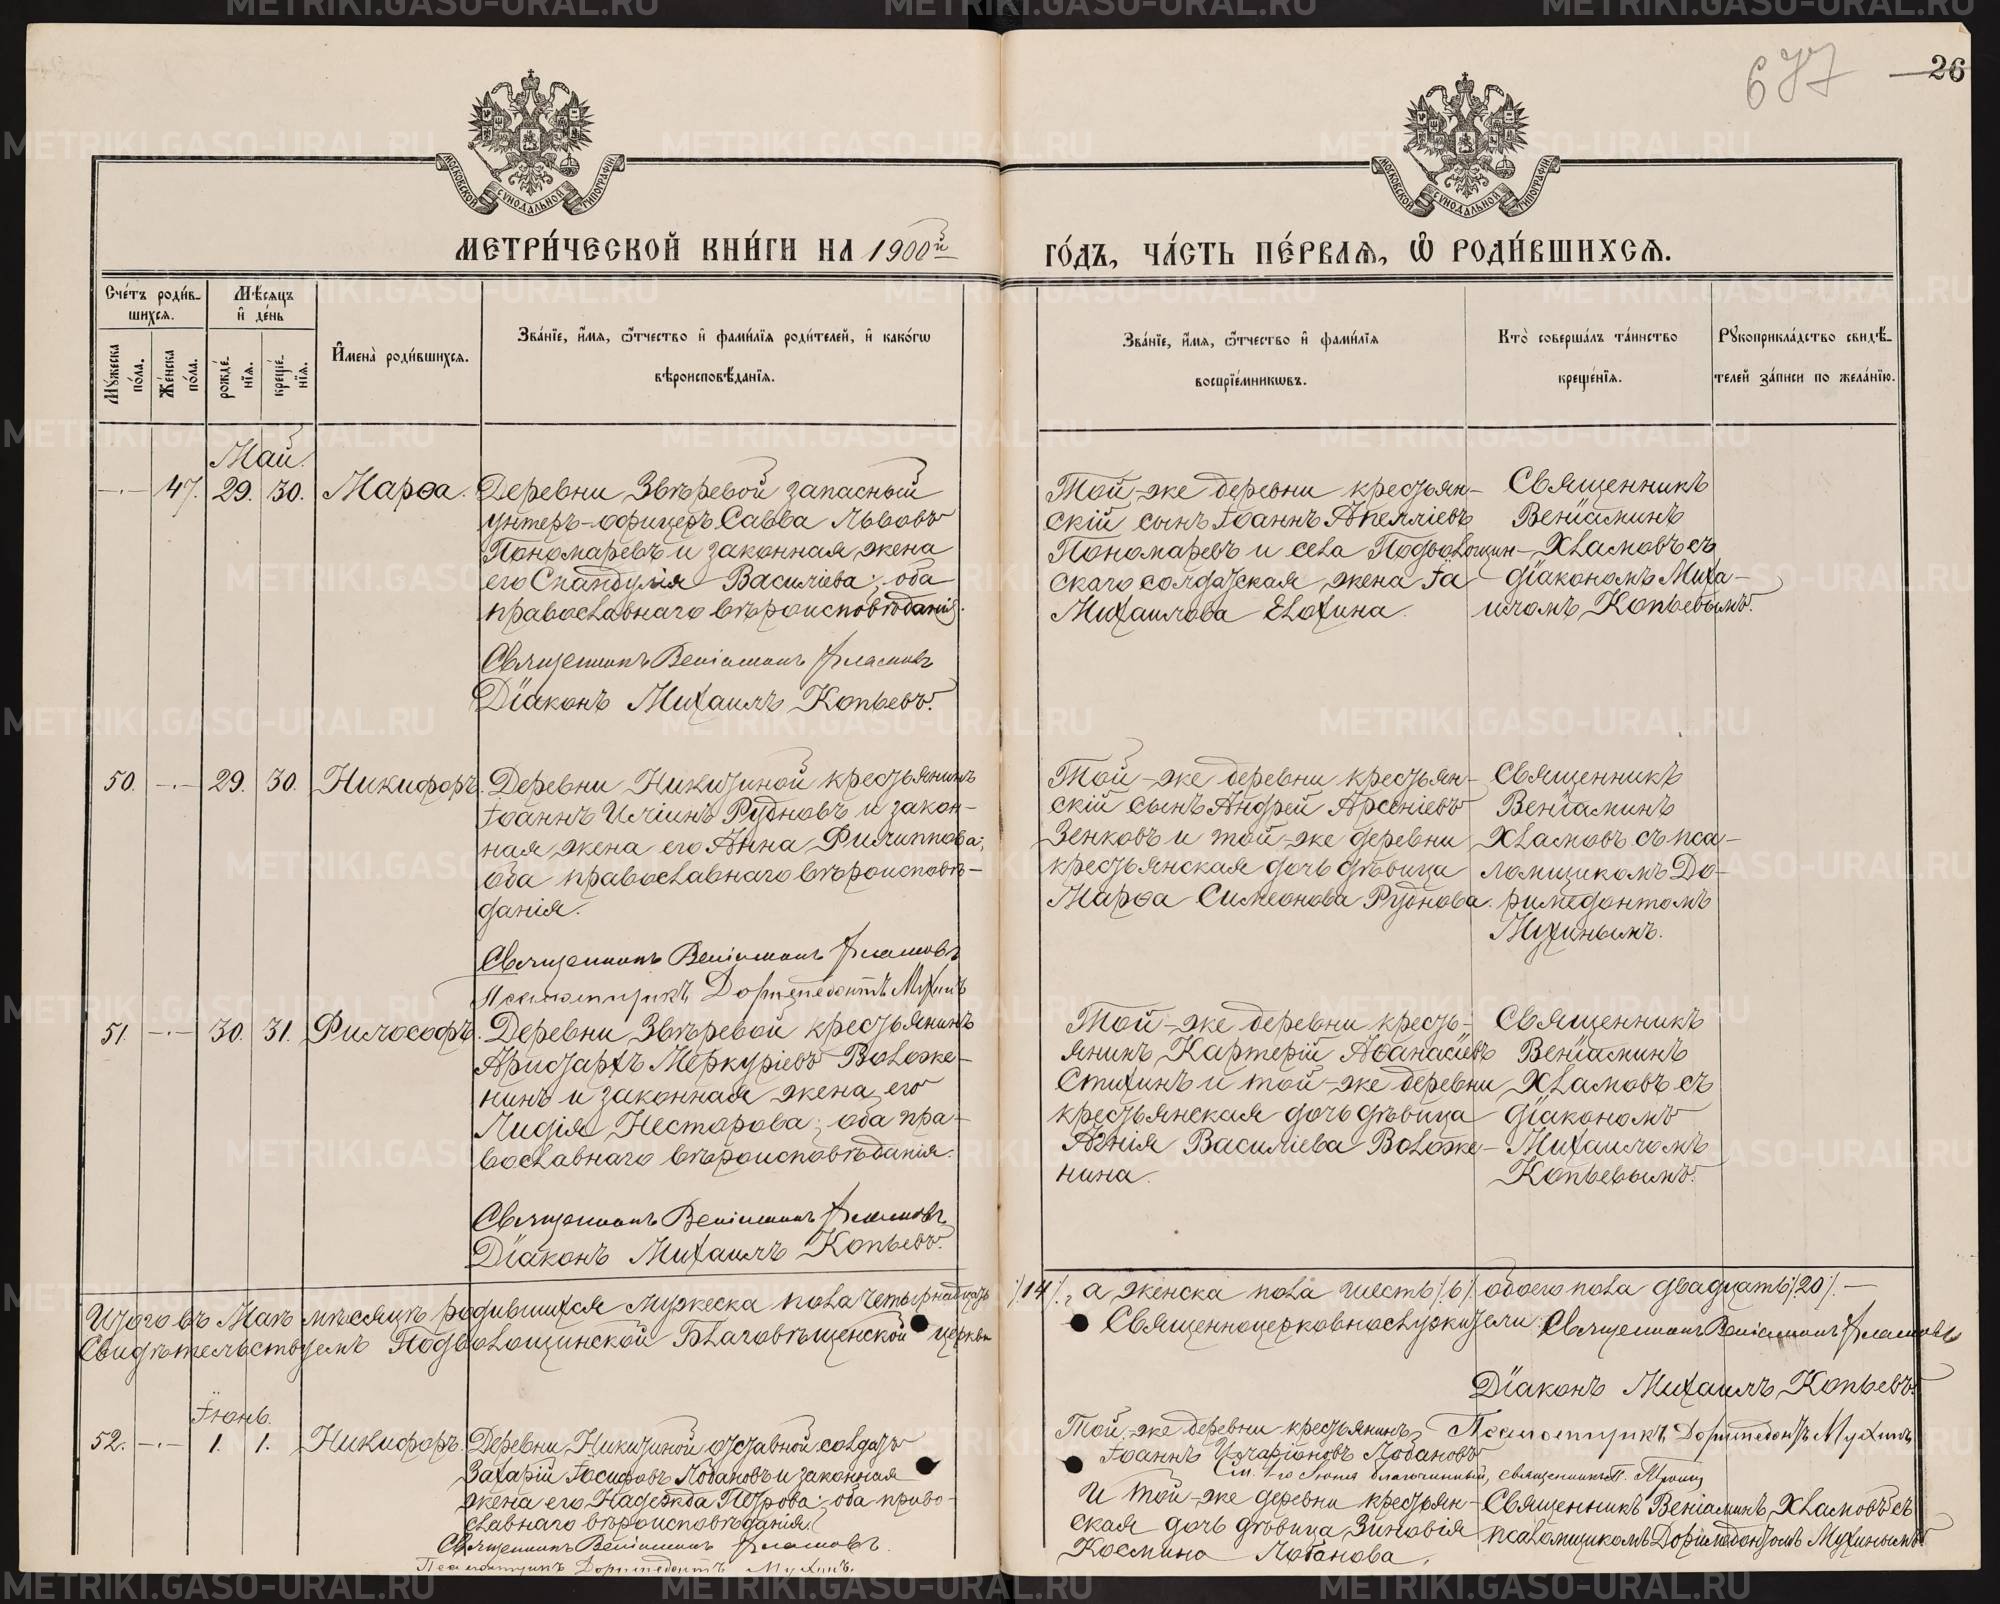 677
26
МОСКОВСКОЙ СУНОДАЛЬНОЙ ТИПОГРАФІИ
МОСКОВСКОЙ СУНОДАЛЬНОЙ ТИПОГРАФІИ
МЕТРИ́ЧЕСКОЙ КНИ́ГИ НА 1900й
ГО́ДЪ, ЧА́СТЬ ПЕ́РВАѦ, Ѡ РОДИ́ВШИХСѦ.
Счетъ родив-
шихся.
Мѣсяцъ
и день
Мужеска
пола.
Женска
пола.
рожде-
нія.
креще-
нія.
Имена родившихся.
Званіе, имя, отчество и фамилія родителей, и какогw
вѣроисповѣданія.
Званіе, имя, отчество и фамилія
воспріемникwвъ.
Кто совершалъ таинство
крещенія.
Рукоприкладство свидѣ-
телей записи по желанію.
Май.
—·— 47. 29. 30. Марѳа.
Деревни Звѣревой запасный
унтеръ-офицеръ Савва Львовъ
Пономаревъ и законная жена
его Скандулія Василіева; оба
православнаго вѣроисповѣданія.
Священникъ Веніаминъ Хламовъ
Діаконъ Михаилъ Копьевъ.
Той-же деревни крестьян-
скій сынъ Іоаннъ Апелліевъ
Пономаревъ и села Подволошин-
скаго солдатская жена Іа
Михаилова Елохина.
Священникъ
Веніаминъ
Хламовъ съ
діакономъ Миха-
иломъ Копьевымъ.
50. —·— 29. 30. Никифоръ.
Деревни Никитиной крестьянинъ
Іоаннъ Иліинъ Рудновъ и закон-
ная жена его Анна Филиппова;
оба православнаго вѣроисповѣ-
данія.
Священникъ Веніаминъ Хламовъ
Псаломщикъ Доримедонтъ Мухинъ
Той-же деревни крестьян-
скій сынъ Андрей Арсеніевъ
Зенковъ и той-же деревни
крестьянская дочь дѣвица
Марѳа Симеонова Руднова.
Священникъ
Веніаминъ
Хламовъ съ пса-
ломщикомъ До-
римедонтомъ
Мухинымъ.
51. —·— 30. 31. Философъ.
Деревни Звѣревой крестьянинъ
Аристархъ Меркуріевъ Воложе-
нинъ и законная жена его
Лидія Несторова; оба пра-
вославнаго вѣроисповѣданія.
Священникъ Веніаминъ Хламовъ
Діаконъ Михаилъ Копьевъ.
Той-же деревни кресть-
янинъ Картерій Аѳанасіевъ
Стихинъ и той-же деревни
крестьянская дочь дѣвица
Агнія Василіева Воложе-
нина.
Священникъ
Веніаминъ
Хламовъ съ
діакономъ
Михаиломъ
Копьевымъ.
Итого въ Маѣ мѣсяцѣ родившихся мужеска пола четырнадцать
/14/, а женска пола шесть /6/ обоего пола двадцать /20/. —
Свидѣтельствуемъ Подволошинской Благовѣщенской церкви
Священноцерковнослужители: Священникъ Веніаминъ Хламовъ
Діаконъ Михаилъ Копьевъ
Псаломщикъ Доримедонтъ Мухинъ
Іюнь.
52. —·— 1. 1. Никифоръ.
Деревни Никитиной отставной солдатъ
Захарій Іосифовъ Лобановъ и законная
жена его Надежда Петрова; оба право-
славнаго вѣроисповѣданія.
Священникъ Веніаминъ Хламовъ.
Псаломщикъ Доримедонтъ Мухинъ.
Той-же деревни крестьянинъ
Іоаннъ Иларіоновъ Лобановъ
благочинный, священникъ П.
и той-же деревни крестьян-
ская дочь дѣвица Зиновія
Космина Лобанова.
Священникъ Веніаминъ Хламовъ съ
псаломщикомъ Доримедонтомъ Мухинымъ
METRIKI.GASO-URAL.RU